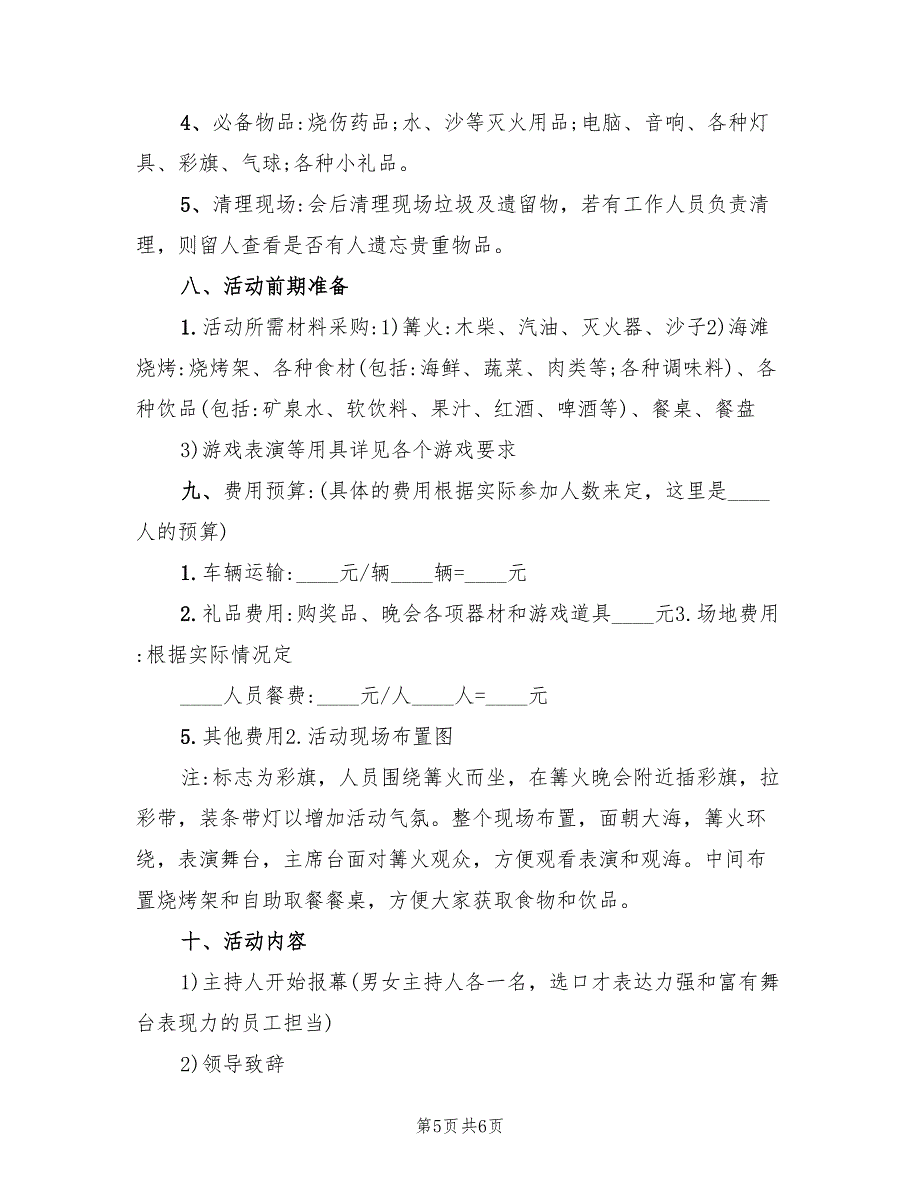 4、必备物品:烧伤药品;水、沙等灭火用品;电脑、音响、各种灯
具、彩旗、气球;各种小礼品。
5、清理现场:会后清理现场垃圾及遗留物，若有工作人员负责清
理，则留人查看是否有人遗忘贵重物品。
八、活动前期准备
1.活动所需材料采购:1)篝火:木柴、汽油、灭火器、沙子2)海滩
烧烤:烧烤架、各种食材(包括:海鲜、蔬菜、肉类等;各种调味料)、各
种饮品(包括:矿泉水、软饮料、果汁、红酒、啤酒等)、餐桌、餐盘
3)游戏表演等用具详见各个游戏要求
九、费用预算:(具体的费用根据实际参加人数来定，这里是____
人的预算)
1.车辆运输:____元/辆____辆=____元
2.礼品费用:购奖品、晚会各项器材和游戏道具____元3.场地费用
:根据实际情况定
____人员餐费:____元/人____人=____元
5.其他费用2.活动现场布置图
注:标志为彩旗，人员围绕篝火而坐，在篝火晚会附近插彩旗，拉
彩带，装条带灯以增加活动气氛。整个现场布置，面朝大海，篝火环
绕，表演舞台，主席台面对篝火观众，方便观看表演和观海。中间布
置烧烤架和自助取餐餐桌，方便大家获取食物和饮品。
十、活动内容
1)主持人开始报幕(男女主持人各一名，选口才表达力强和富有舞
台表现力的员工担当)
2)领导致辞
第5页 共6页